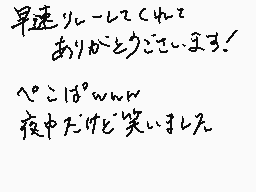 早速リレーしてくれて
ありがとうございます!
ぺこぱwww
夜中だけど笑いました